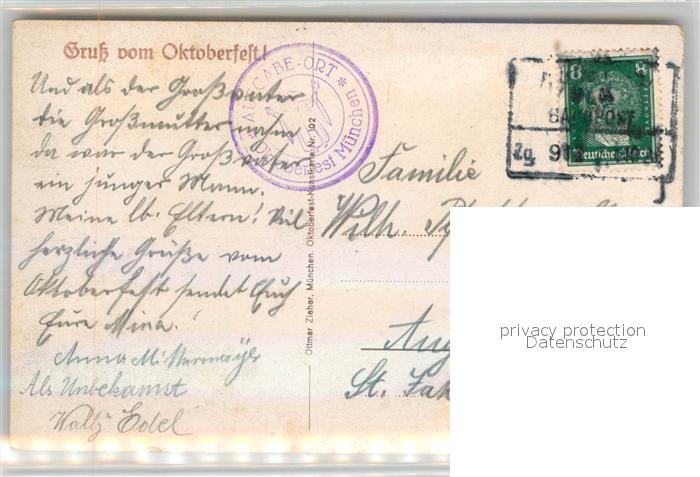 Gruß vom Oktoberfest!
Und als der Großvater
die Großmutter nahm
da war der Großvater
ein junger Mann.
Meine lb. Eltern! Viel
herzliche Grüße vom
Oktoberfest sendet Euch
Eure Mina.
Anna Mittermayr
Als Unbekannt
Wally Edel
AUFGABE-ORT * Oktoberfest München *
Ottmar Zieher, München. Oktoberfest-Kunstkarte Nr. 102
8 8
Deutsches Reich
BAHNPOST
Zg
Familie
Wilh.
St.
privacy protection
Datenschutz